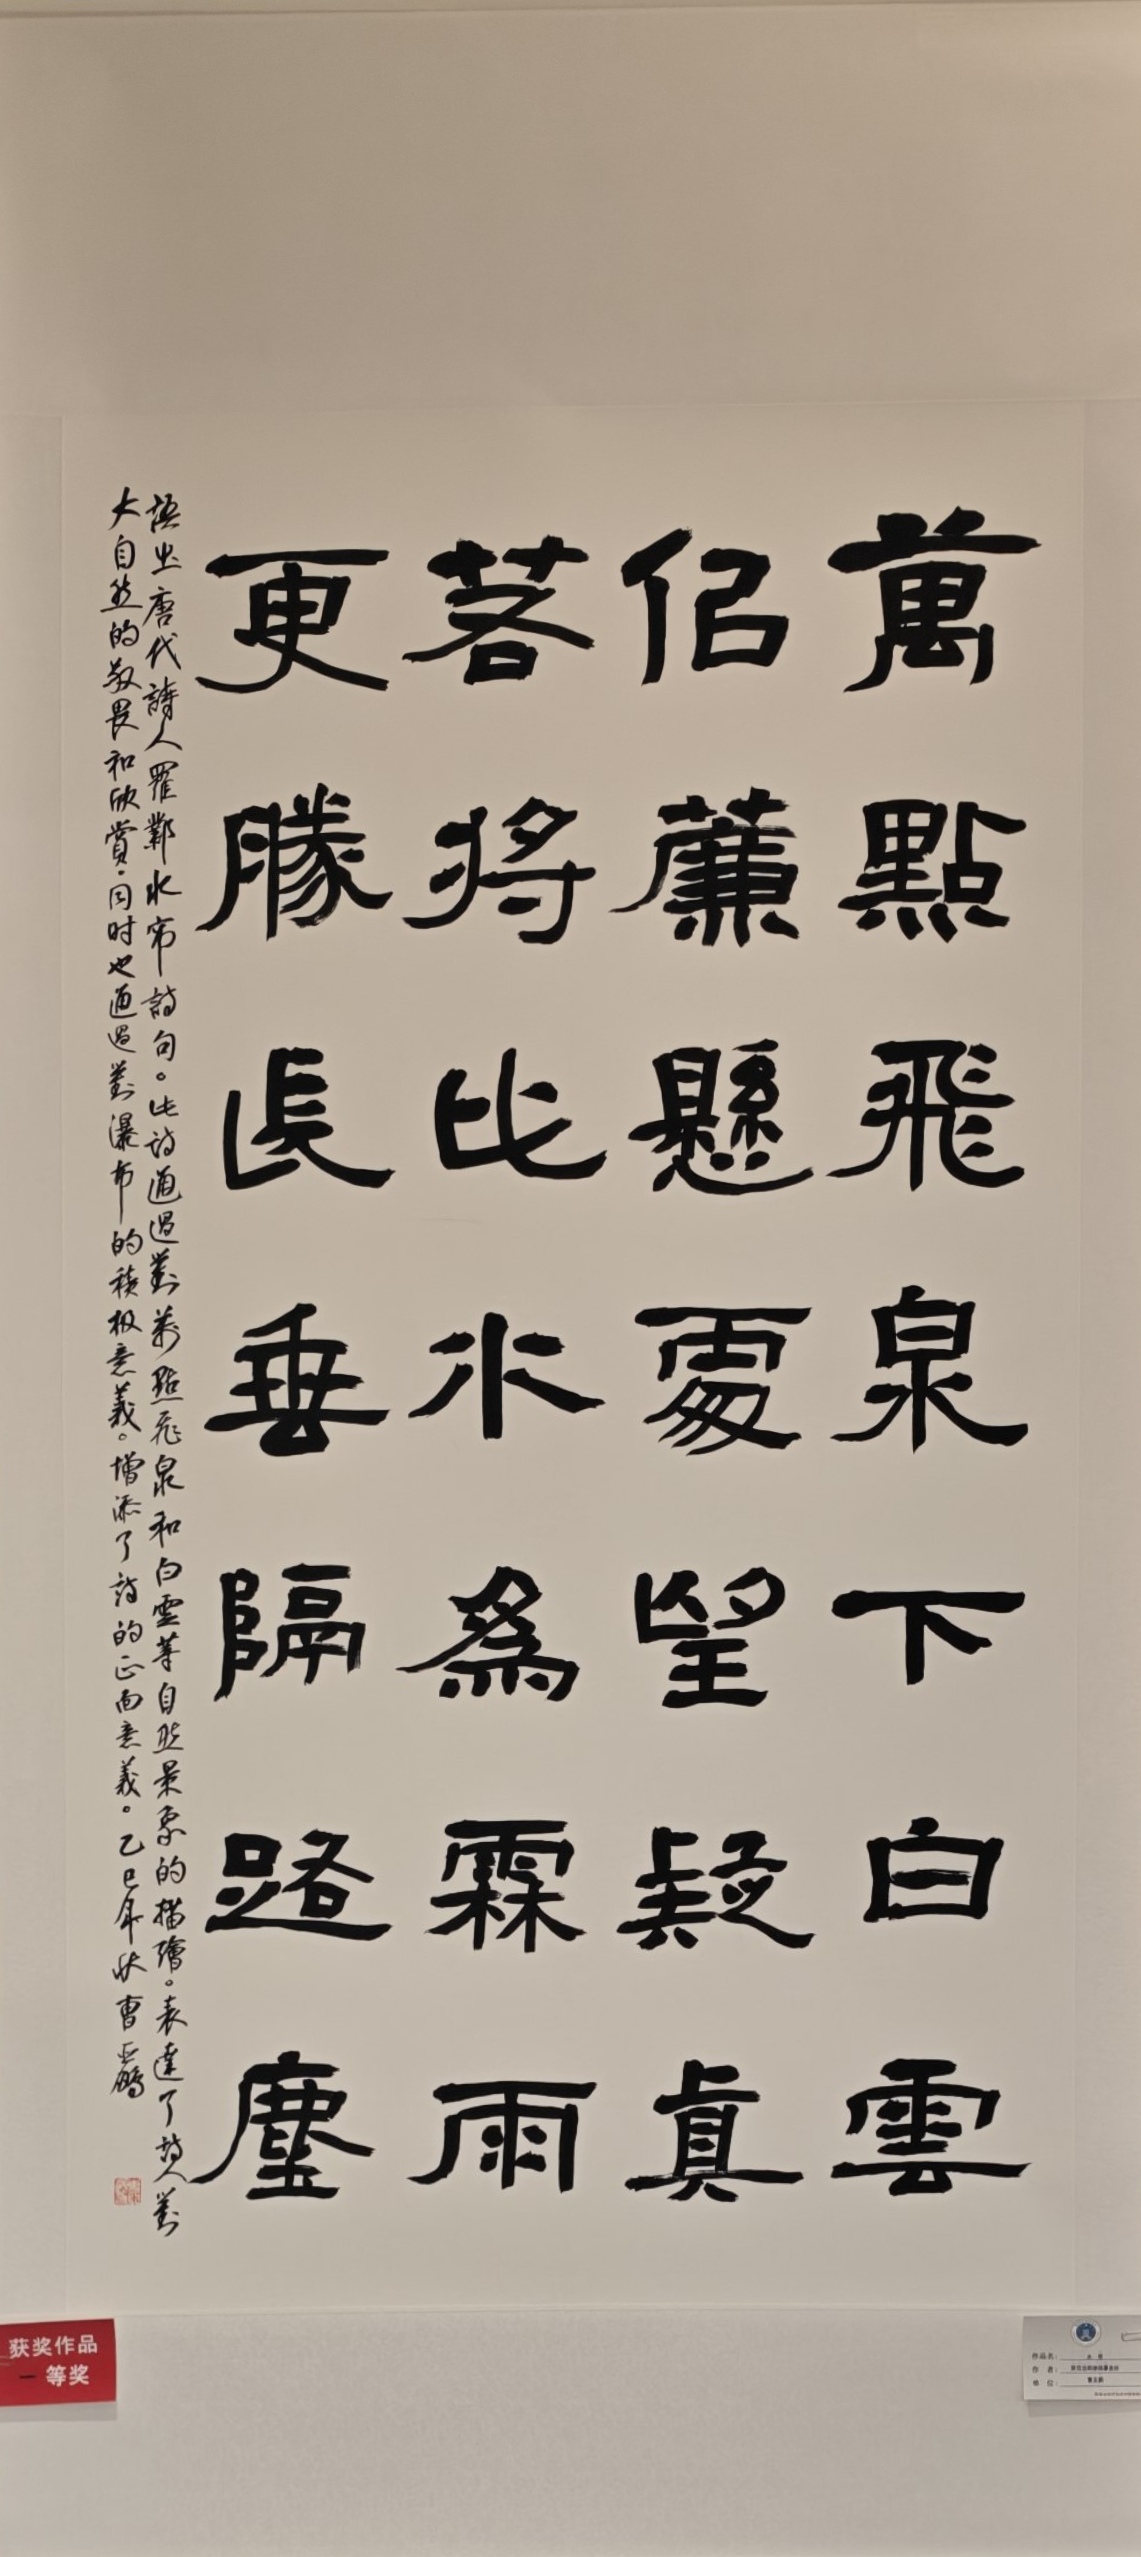 萬點飛泉下白雲
佀薕懸處望疑真
若將比水為霖雨
更勝長垂隔路塵
語出唐代詩人羅鄴水帘詩句。此詩通過對萬點飛泉和白雲等自然景象的描繪。表達了詩人對
大自然的敬畏和欣賞。同时也通過對瀑布的積极意義。增添了詩的正面意義。乙巳年秋曹亚鵬
获奖作品
一等奖
作品名：
作 者：
单 位：